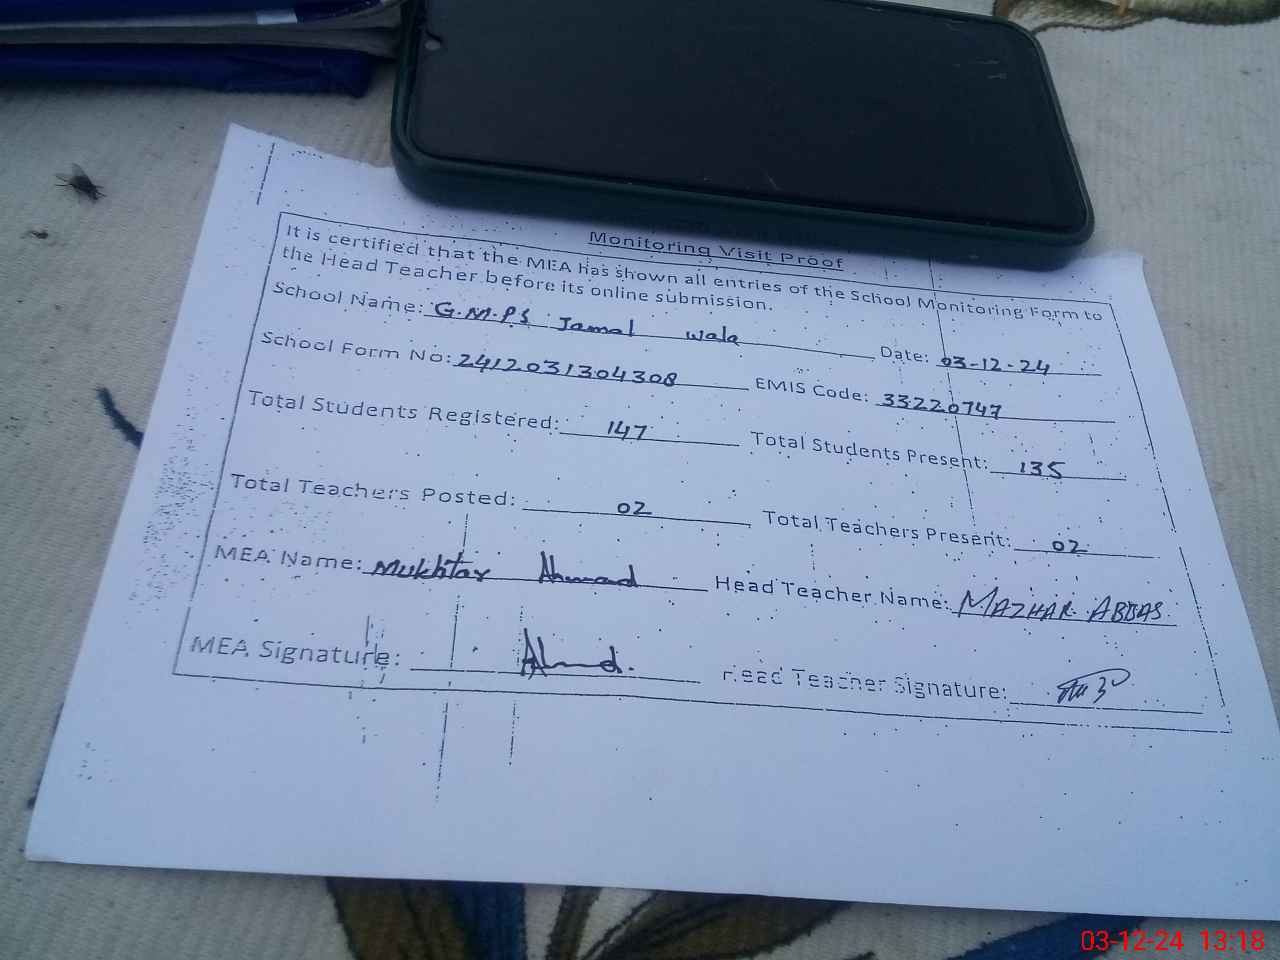 Monitoring Visit Proof
It is certified that the MEA has shown all entries of the School Monitoring Form to
the Head Teacher before its online submission.
School Name: G.M.P.S Jamal wala Date: 03-12-24
School Form No: 2412031304308 EMIS Code: 33220747
Total Students Registered: 147 Total Students Present: 135
Total Teachers Posted: 02 Total Teachers Present: 02
MEA Name: Mukhtar Ahmad Head Teacher Name: MAZHAR ABBAS
MEA Signature: Ahmd. Head Teacher Signature:
03-12-24 13:18